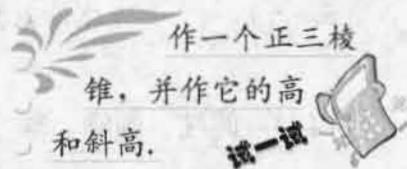 作一个正三棱
锥，并作它的高
和斜高.
试一试